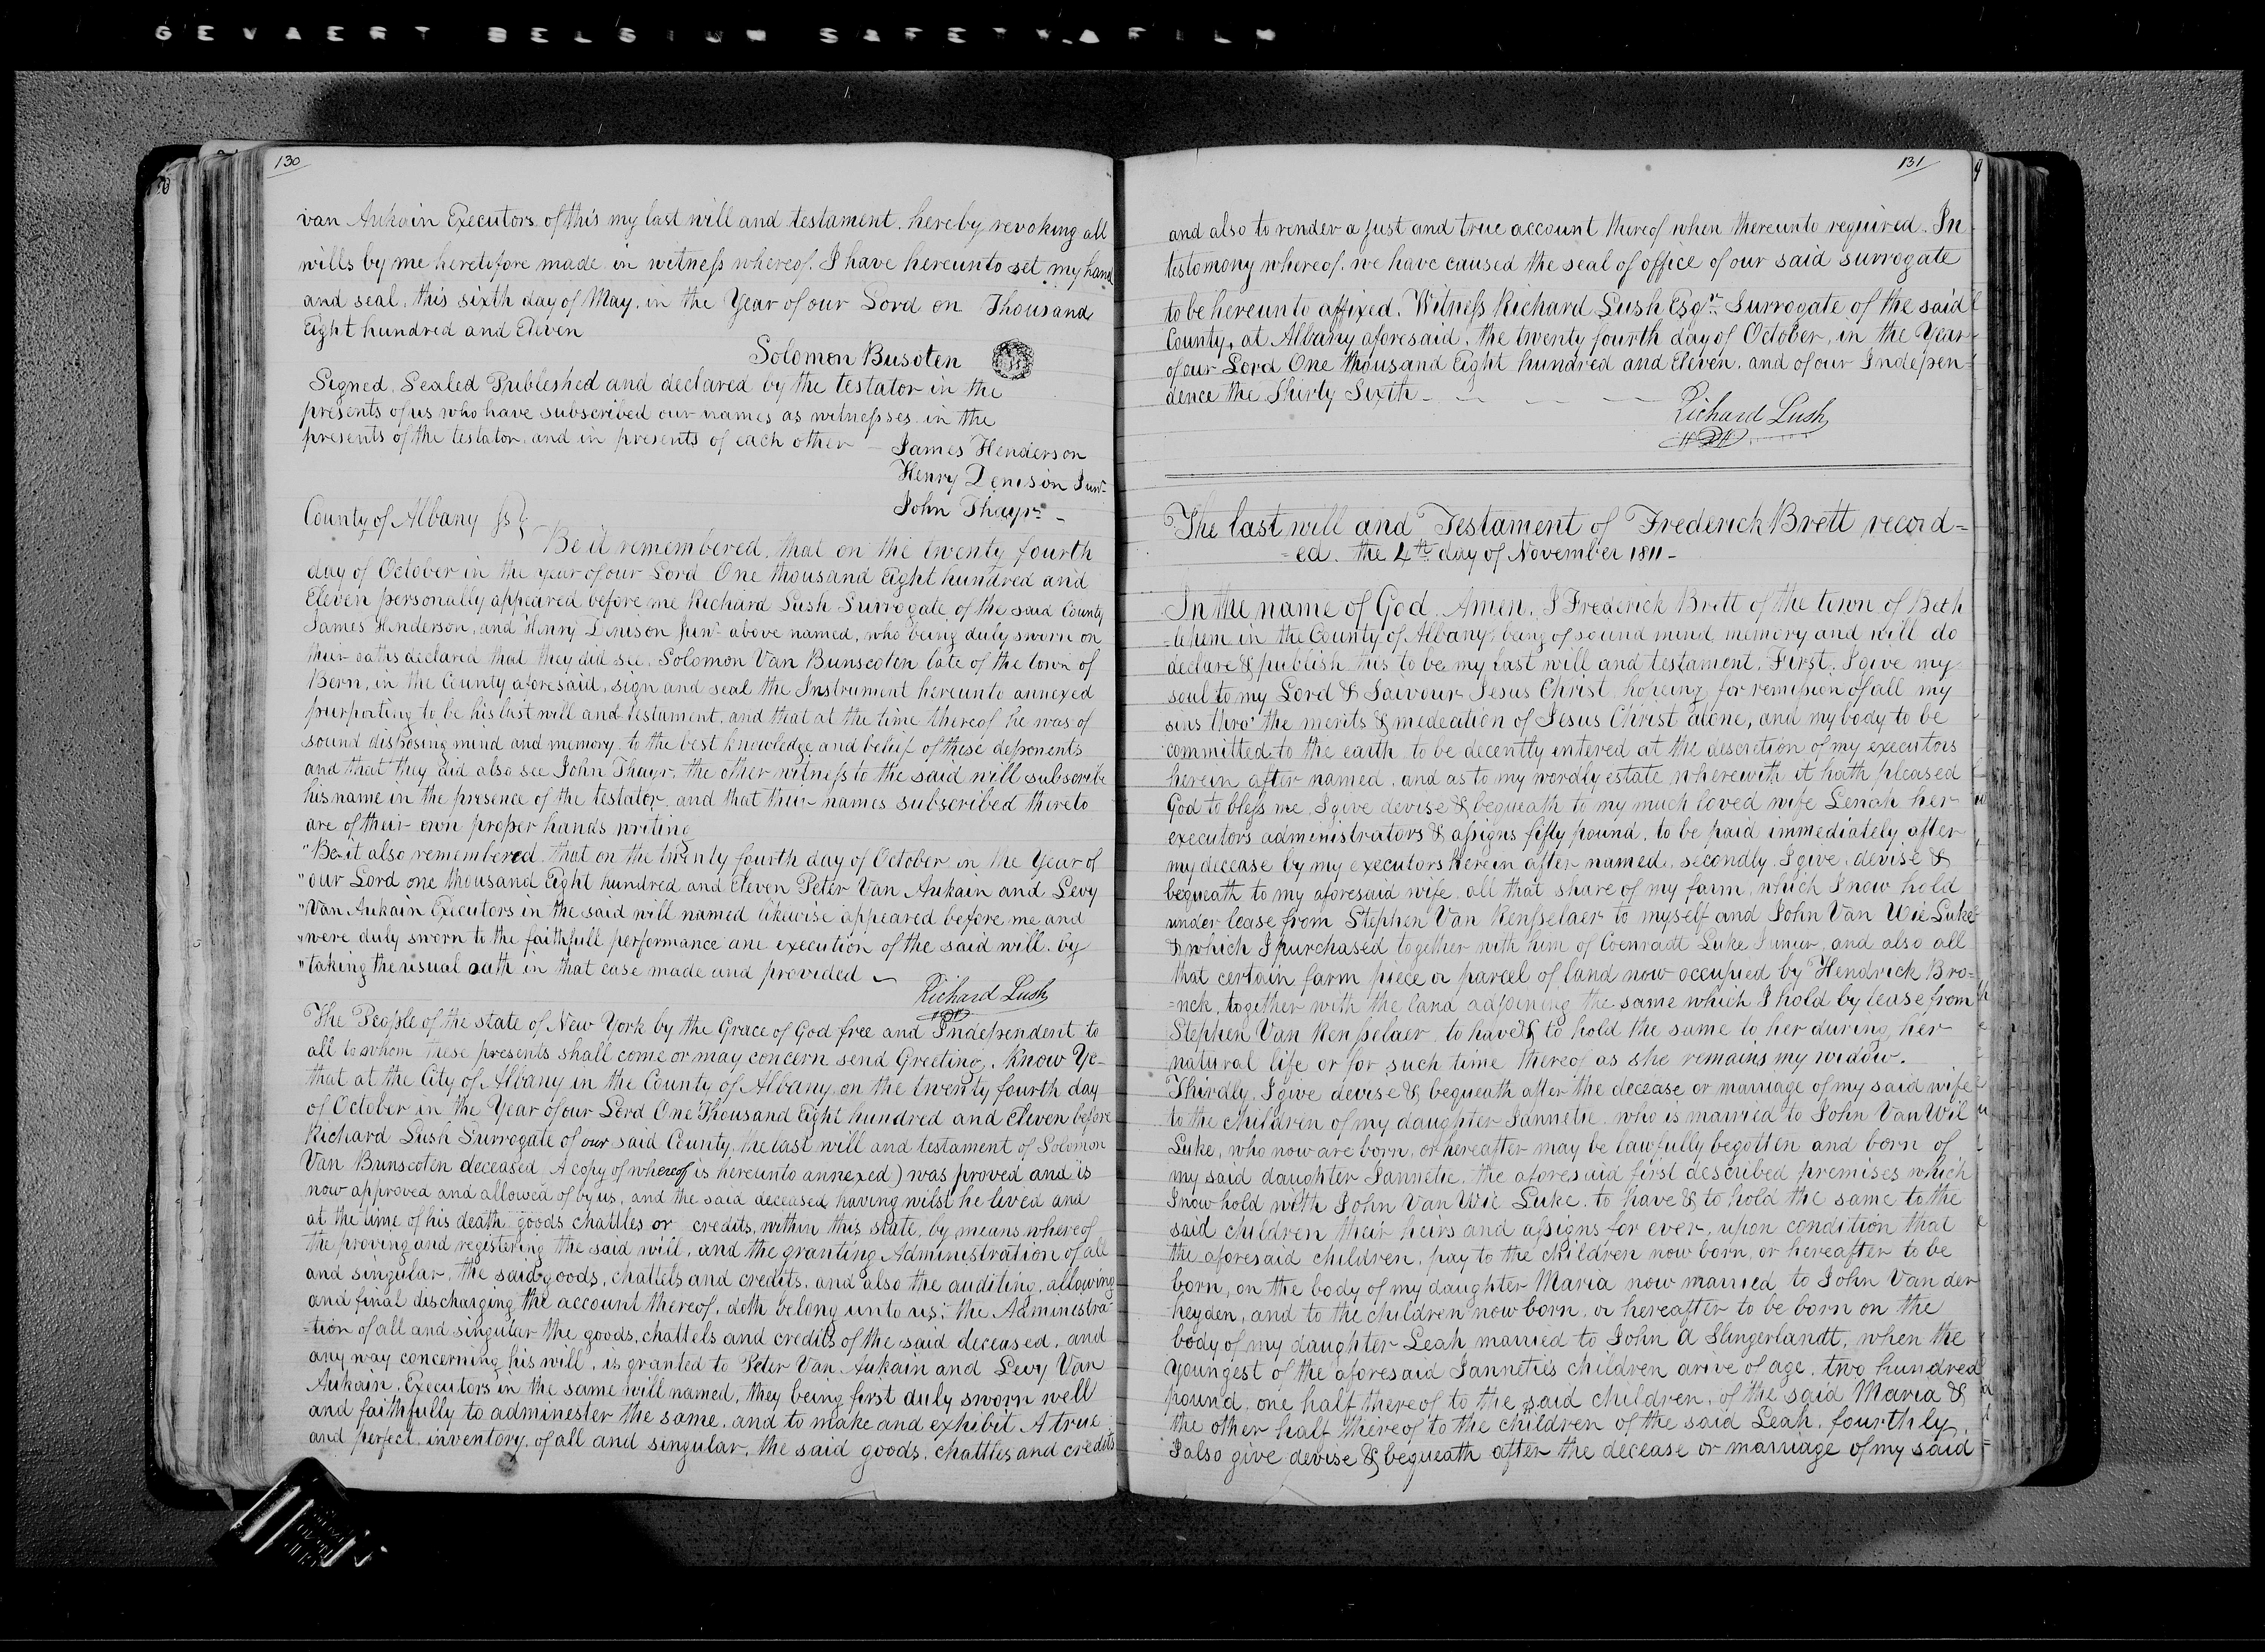 GEVAERT BELGIUM SAFETY FILM
130
van Aukain Executors of this my last will and testament, hereby revoking all
wills by me heretofore made in witness whereof, I have hereunto set my hand
and seal, this sixth day of May, in the Year of our Lord on Thousand
Eight hundred and Eleven
Solomon Busoten
Signed, Sealed Publeshed and declared by the testator in the
presents of us who have subscribed our names as witnessses in the
presents of the testator, and in presents of each other
James Henderson
Henry Denison Junr
John Thayr
County of Albany ss
Be it remembered, that on the twenty fourth
day of October in the year of our Lord One thousand Eight hundred and
Eleven personally appeared before me Richard Lush Surrogate of the said County
James Henderson, and Henry Denison Junr above named, who being duly sworn on
their oaths declared that they did see, Solomon Van Bunscoten late of the town of
Bern, in the County aforesaid, sign and seal the Instrument hereunto annexed
purporting to be his last will and testament, and that at the time thereof he was of
sound disposing mind and memory to the best knowledge and belief of these deponents
and that they did also see John Thayr, the other witness to the said will subscribe
his name in the presence of the testator, and that their names subscribed thereto
are of their own proper hands writing
"Be it also remembered that on the twenty fourth day of October in the Year of
"our Lord one thousand Eight hundred and Eleven Peter Van Aukain and Levy
"Van Aukain Executors in the said will named likewise appeared before me and
"were duly sworn to the faithfull performance ane execution of the said will, by
"taking the usual oath in that case made and provided
Richard Lush
The People of the state of New York by the Grace of God free and Independent to
all to whom these presents shall come or may concern send Greeting, Know Ye
that at the City of Albany in the County of Albany on the twenty fourth day
of October in the Year of our Lord One Thousand Eight hundred and Eleven before
Richard Lush Surrogate of our said County, the last will and testament of Solomon
Van Bunscoten deceased A copy of whereof is hereunto annexed) was proved and is
now approved and allowed of by us, and the said deceased having wilst he lived and
at the time of his death goods chattles or credits, within this state, by means whereof
the proving and registering the said will, and the granting Administration of all
and singular, the said goods, chattels and credits, and also the auditing, allowing
and final discharging the account thereof, doth belong unto us; the Adminestra-
=tion of all and singular the goods, chattels and credits of the said deceased, and
any way concerning his will, is granted to Peter Van Aukain and Levy Van
Aukain, Executors in the same will named, they being first duly sworn well
and faithfully to adminester the same, and to make and exhibit A true
and perfect inventory, of all and singular, the said goods, chattles and credits
131
and also to render a just and true account thereof when thereunto required. In
testomony whereof, we have caused the seal of office of our said surrogate
to be hereunto affixed. Witness Richard Lush Esqr. Surrogate of the said
County, at Albany aforesaid, the twenty fourth day of October, in the Year
of our Lord One thousand Eight hundred and Eleven, and of our Indepen-
dence the Thirty Sixth
Richard Lush
The last will and Testament of Frederick Brett record=
=ed. the 4th day of November 1811-
In the name of God Amen, I Frederick Brett of the town of Beth
=lehem in the County of Albany, being of sound mind memory and will do
declare & publish this to be my last will and testament, First, I give my
soul to my Lord & Saivour Jesus Christ hopeing for remission of all my
sins thro' the merits & medeation of Jesus Christ alone, and my body to be
committed to the earth to be decently entered at the descretion of my executors
herein after named, and as to my wordly estate wherewith it hath pleased
God to bless me, I give devise & bequeath to my much loved wife Lenah her
executors administrators & assigns fifty pound, to be paid immediately after
my decease by my executors herein after named, secondly I give, devise &
bequeath to my aforesaid wife, all that share of my farm, which I now hold
under lease from Stephen Van Rensselaer to myself and John Van Wie Luke
& which I purchased together with him of Coenradt Luke Junier, and also all
that certain farm piece or parcel of land now occupied by Hendrick Bro=
=nck, together with the land adjoining the same which I hold by lease from
Stephen Van Rensselaer to have & to hold the same to her during her
natural life or for such time thereof as she remains my widow.
Thirdly, I give devise & bequeath after the decease or marriage of my said wife
to the children of my daughter Jannetie who is married to John Van Wie
Luke, who now are born, or hereafter may be lawfully begotten and born of
my said daughter Jannetie, the aforesaid first described premises which
I now hold with John Van Wie Luke, to have & to hold the same to the
said children their heirs and assigns for ever, upon condition that
the aforesaid children, pay to the children now born, or hereafter to be
born, on the body of my daughter Maria now married to John Vander
heyden, and to the children now born, or hereafter to be born on the
body of my daughter Leah married to John A Slingerlandt, when the
youngest of the aforesaid Janneties children arive of age, two hundred
pound, one half thereof to the said children, of the said Maria &
the other half thereof to the children of the said Leah, fourthly,
I also give devise & bequeath after the decease or marriage of my said